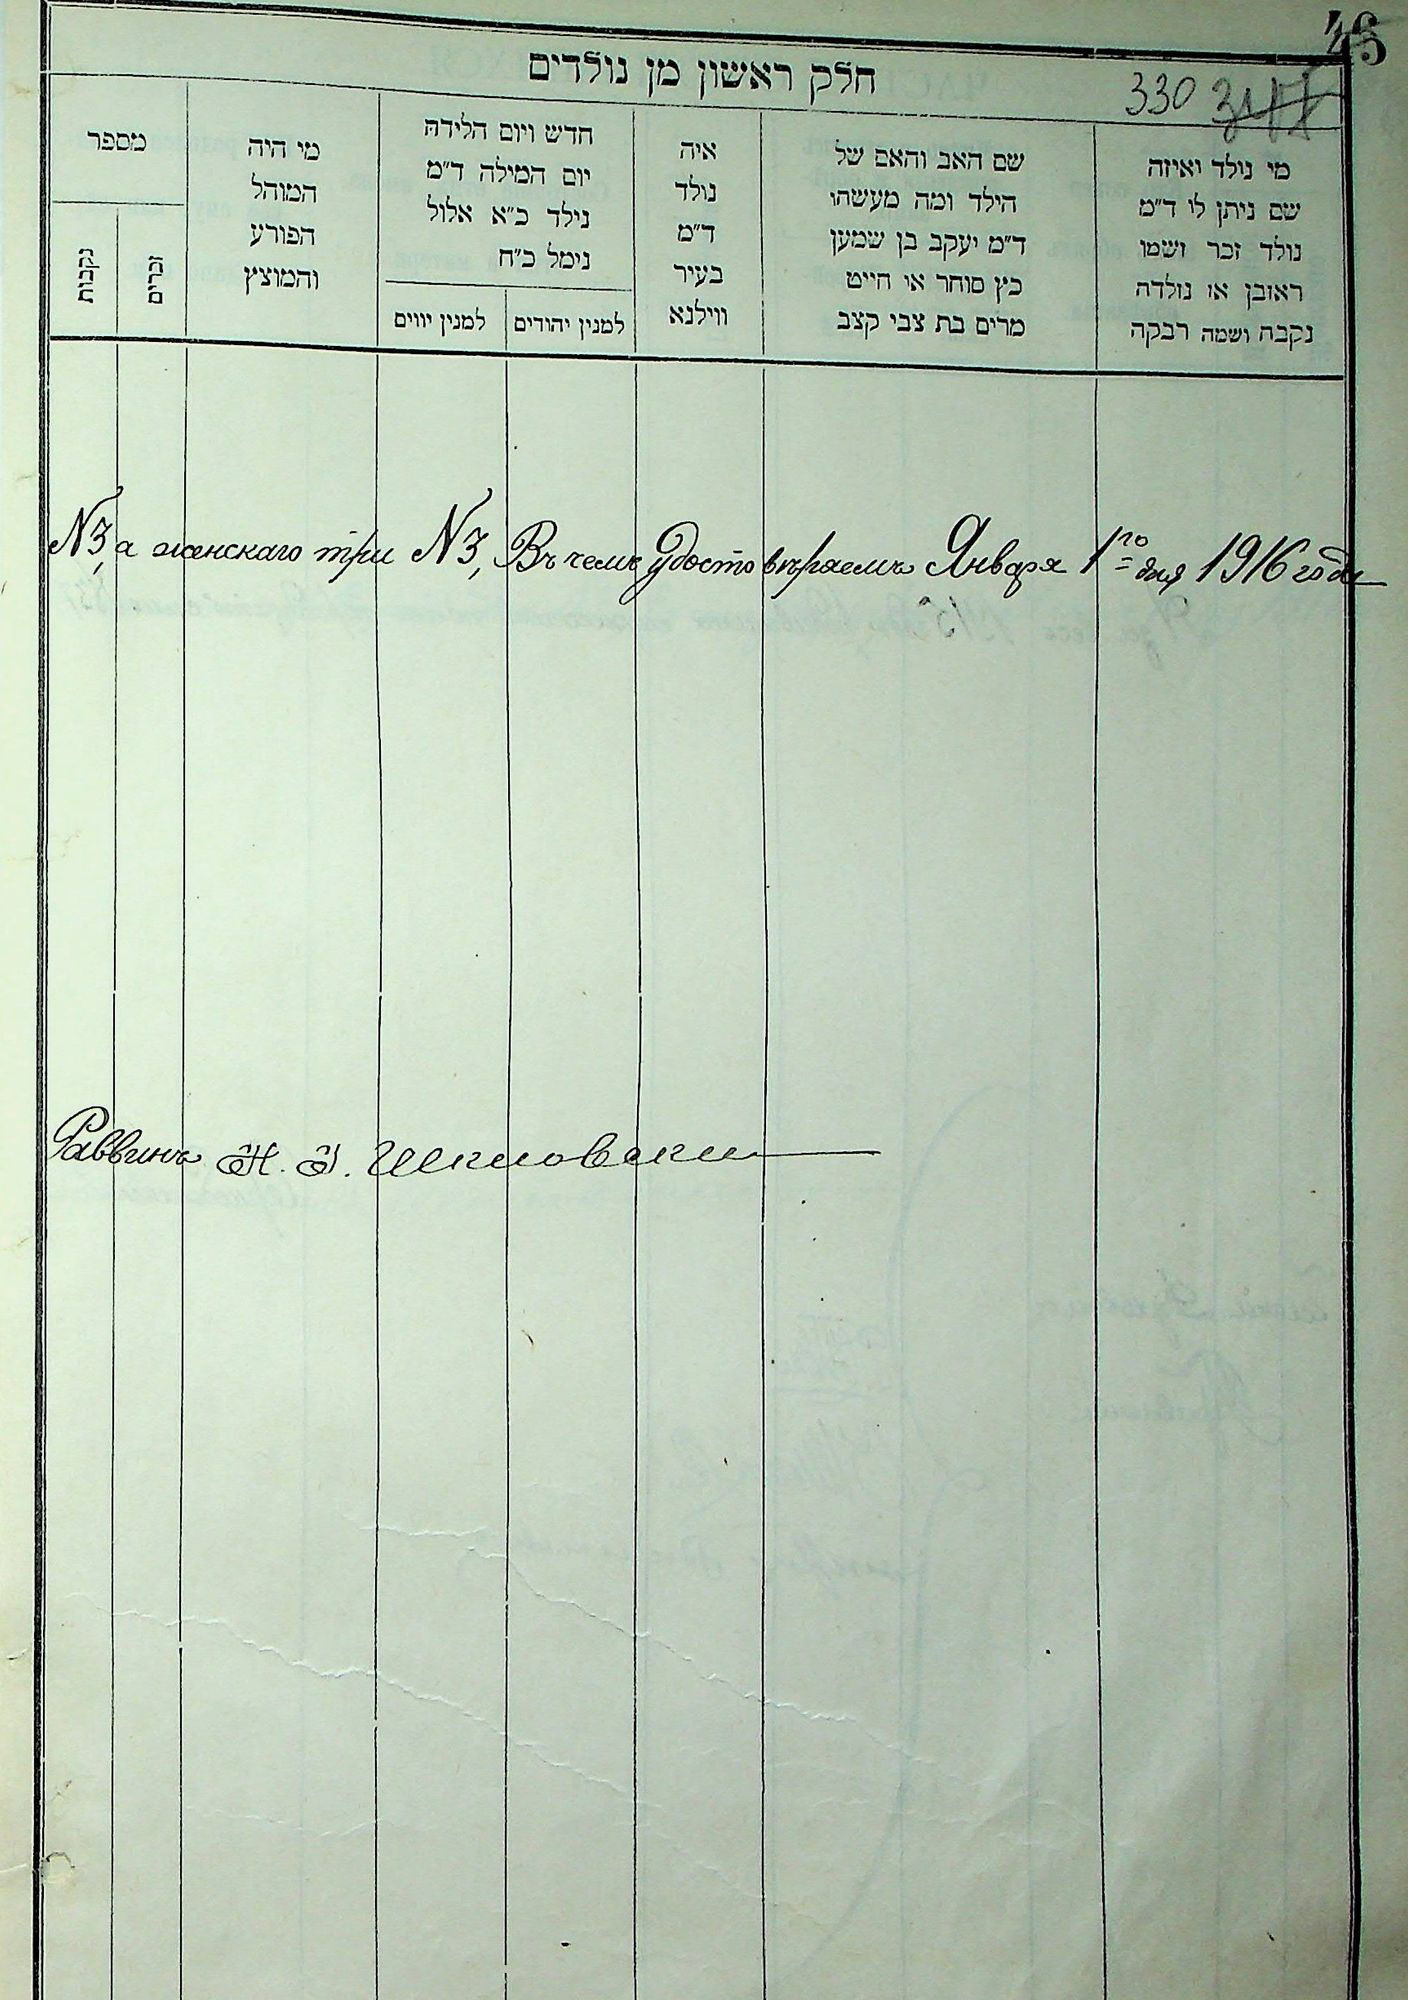 46
חלק ראשון מן נולדים
330 317
מי נולד ואיזה
שם ניתן לו ד״מ
נולד זכר ושמו
ראובן או נולדה
נקבה ושמה רבקה
שם האב והאם של
הילד ומה מעשהו
ד״מ יעקב בן שמעון
כץ סוחר או חייט
מרים בת צבי קצב
איה
נולד
ד״מ
בעיר
ווילנא
חדש ויום הלידה
יום המילה ד״מ
נילד כ״א אלול
נימל כ״ח
למנין יהודים
למנין יווים
מי היה
המוהל
הפורע
והמוצץ
מספר
זכרים
נקבות
№3, а женскаго три №3, Въ чемъ удостовѣряемъ Января 1го дня 1916 года
Раввинъ Н. З. Шкловскій